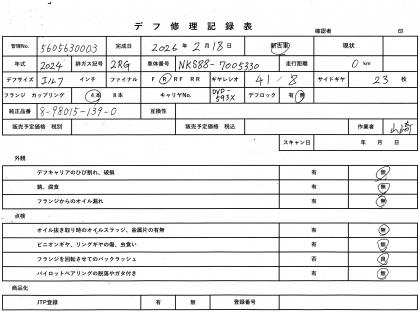 デフ修理記録表
確認者 印
管理No. 5605630003 完成日 2026年2月18日 新古車 現状
年式 2024 排ガス記号 2RG 車体番号 NKS88-7005330 走行距離 0 km
デフサイズ エルフ インチ ファイナル F R RF RR ギヤレシオ 41/8 サイドギヤ 23 枚
フランジ カップリング 4本 8本 キャリヤNo. DVD-593X デフロック 有 無
純正品番 8-98015-139-0 互換性
販売予定価格 税別 販売予定価格 税込 作業者
スキャン日 年 月 日
外観
デフキャリアのひび割れ、破損 有 無
錆、腐食 有 無
フランジからのオイル漏れ 有 無
点検
オイル抜き取り時のオイルスラッジ、金属片の有無 有 無
ピニオンギヤ、リングギヤの傷、虫食い 有 無
フランジを回転させてのバックラッシュ 否 良
パイロットベアリングの脱落やガタ付き 有 無
商品化
JTP登録 有 無 登録番号